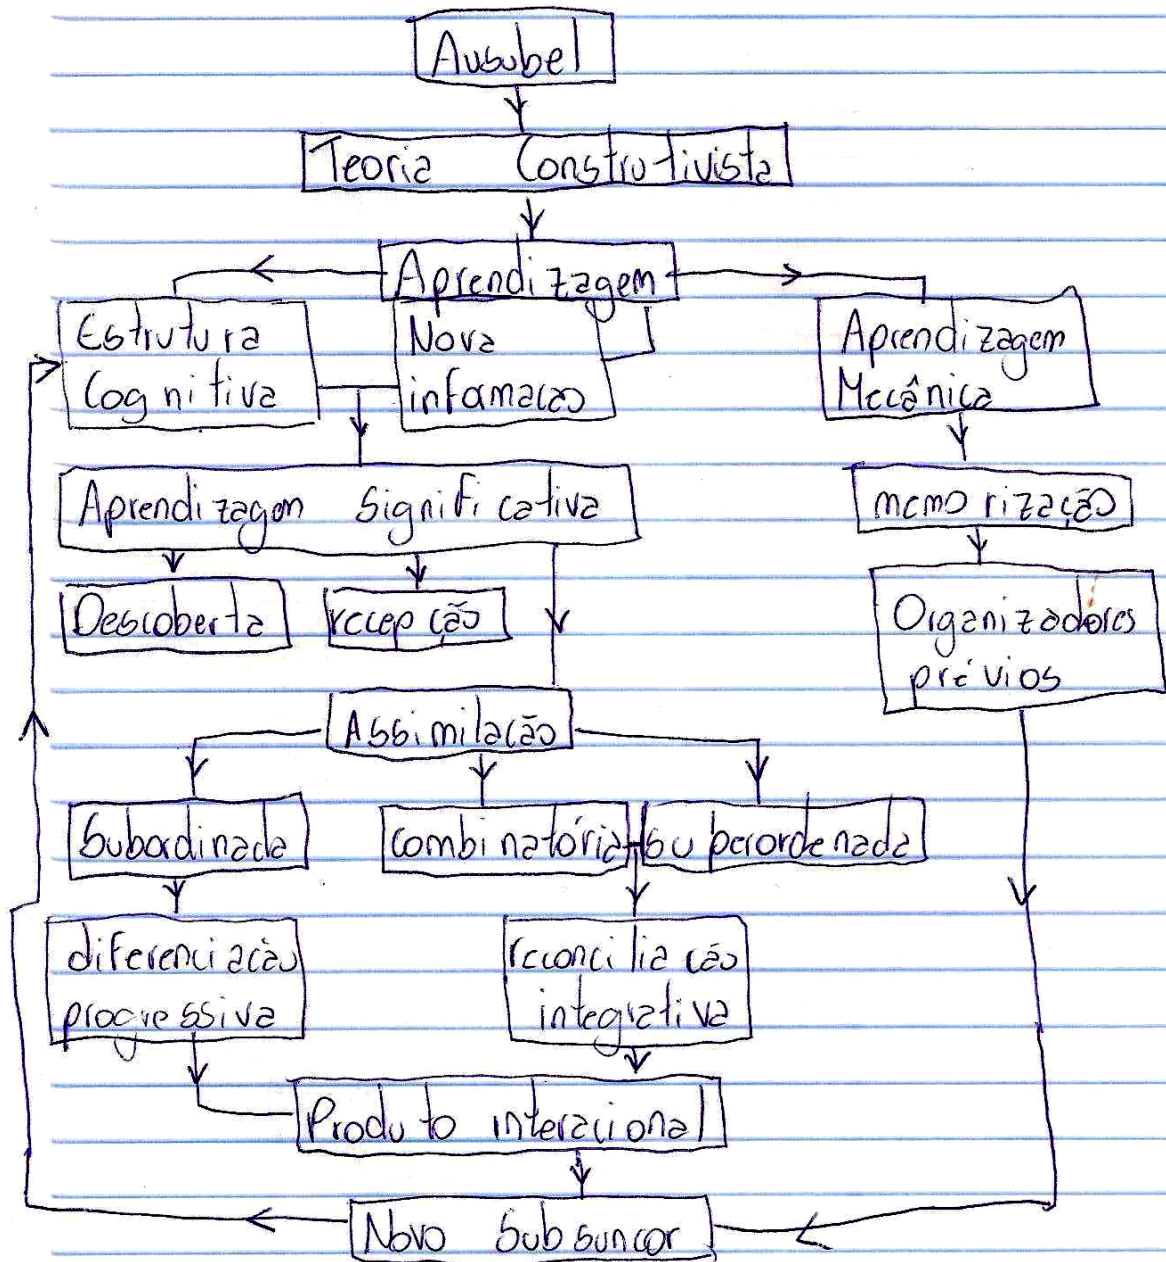 Ausubel
Teoria Construtivista
Aprendizagem
Estrutura
Cognitiva
Nova
infamação
Aprendizagem
Mecânica
Aprendizagem Significativa
memorização
Descoberta
recepção
Organizadores
prévios
Assimilação
Subordinada
combinatória
superordenada
diferenciação
progressiva
reconciliação
integrativa
Produto interacional
Novo Subsunçor